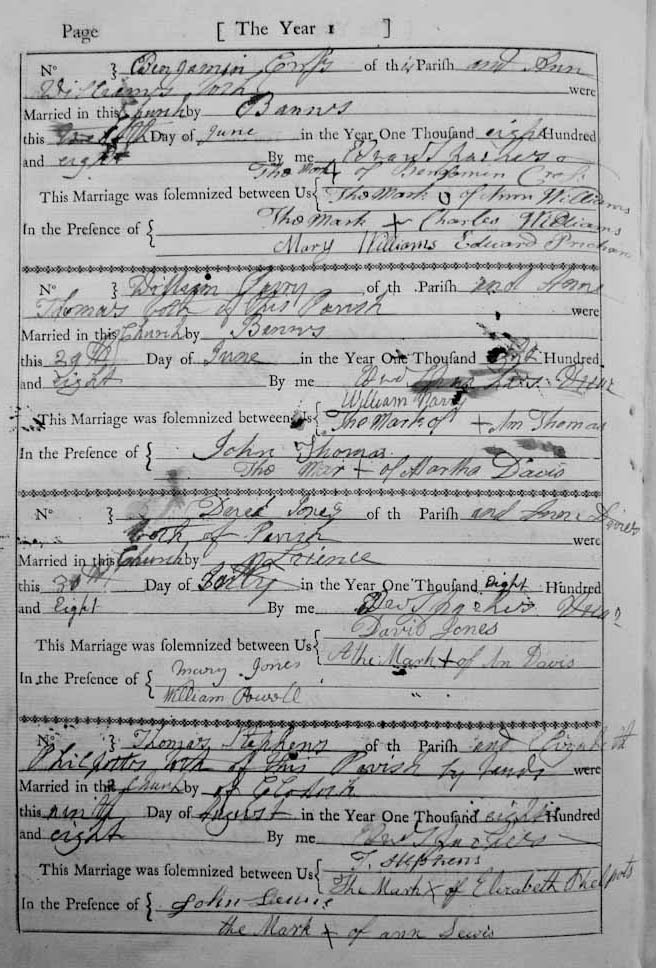 Page [ The Year 1 ]
No } Benjamin of this Parish and Ann
Williams both were
Married in this Church by Banns
this Day of June in the Year One Thousand eight Hundred
and eight By me
The Mark + of Benjamin
This Marriage was solemnized between Us { The Mark O of Ann Williams
In the Presence of { The Mark + Charles Williams
Mary Williams Edward
No } William of th Parish and Anne
Thomas both of this Parish were
Married in this Church by Banns
this 29th Day of June in the Year One Thousand Hundred
and eight By me Vicar
William
This Marriage was solemnized between Us { The Mark of + An Thomas
In the Presence of { John Thomas
The Mar + of Martha Davis
No } David Jones of th Parish and
both of Parish were
Married in this Church by
this 30th Day of in the Year One Thousand Eight Hundred
and Eight By me Vicar
David Jones
This Marriage was solemnized between Us { The Mark + of An Davis
In the Presence of { Mary Jones
William Powell
No } Thomas Stephens of th Parish and Elizabeth
Philpotts both of this Parish by were
Married in this Church by of Clodock
this ninth Day of August in the Year One Thousand eight Hundred
and eight By me
T. Stephens
This Marriage was solemnized between Us { The Mark X of Elizabeth Phelpots
In the Presence of { John Lewis
the Mark + of ann Lewis